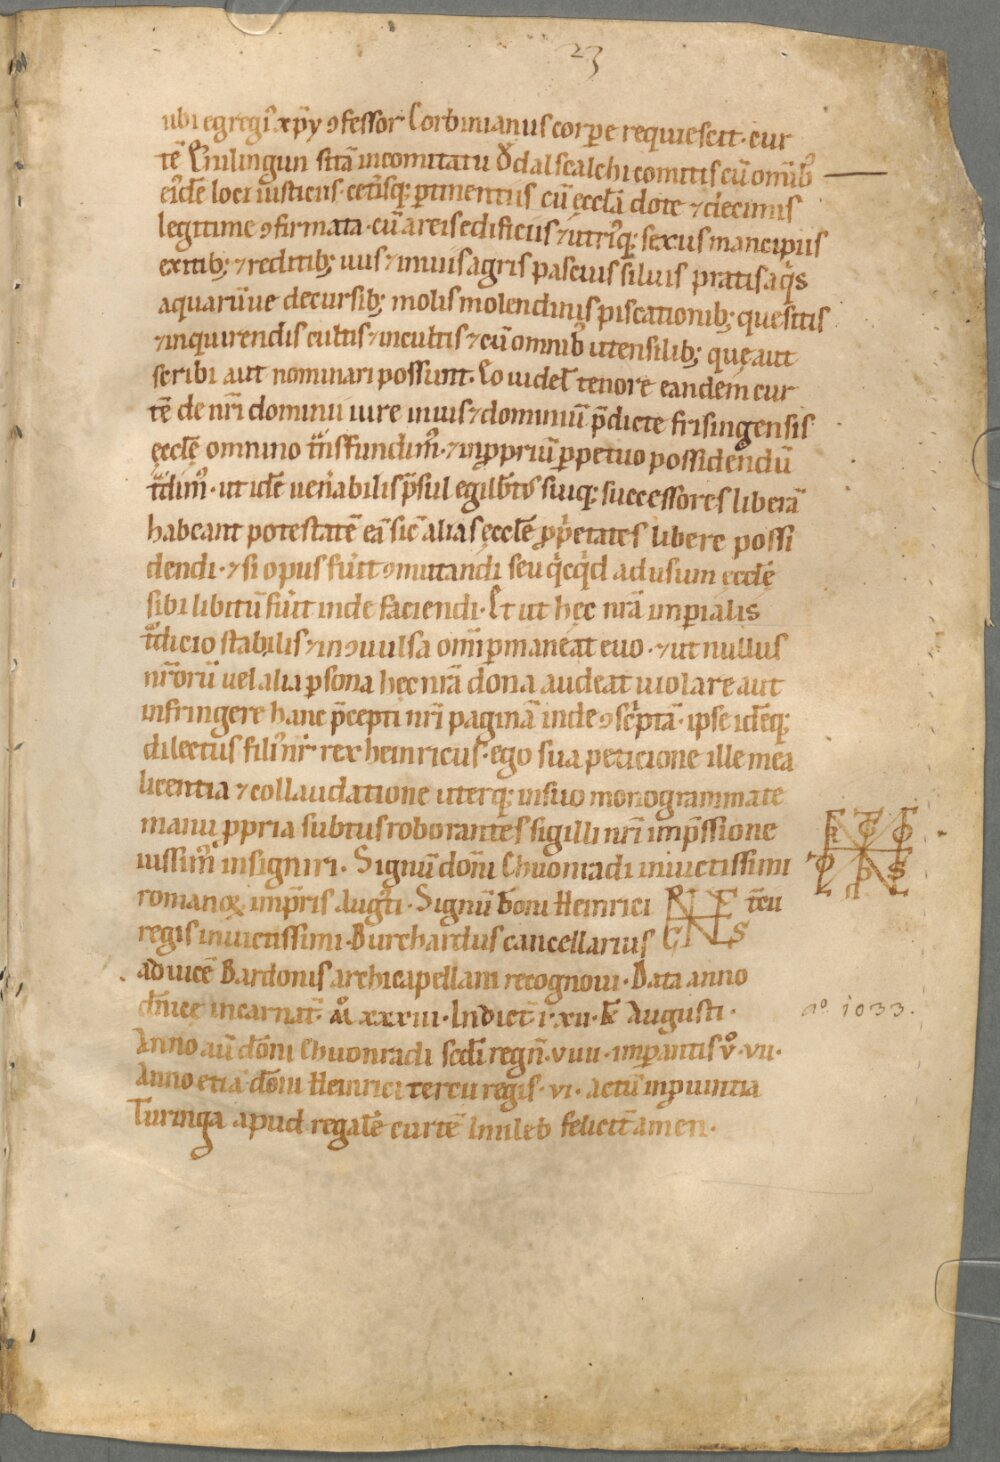 23
ubi egregi᷒ xp̄y ꝯfessor Corbinianus corpore requiescit · cur
tē Eruilingun sitā in comitatu Ǒdalscalchi comitis cū omīb᷒
eidē loci iusticiis · cet̄isq; ꝑtinentiis cū ęccl̄a dote ⁊ decimis
legitime ꝯfirmata · cū areis edificiis ⁊ utriq; sexus mancipiis
exitib; ⁊ redditib; uiis ⁊ inuiis agris pascuis siluis pratis aq̄s
aquarūue decursib; molis molendinis piscationib; quesitis
⁊ inquirendis cultis ⁊ incultis ⁊ cū omnib᷒ utensilib; quę aut
scribi aut nominari possunt. Eo uidel̄ tenore eandem cur
tē de nr̄i dominii iure in ius ⁊ dominiū p̄dicte frisingensis
ęccl̄ę omnino tn̄sfundim᷒ · ⁊ in ꝓpriū ꝑpetuo possidendū
t̄dim᷒ · ut idē uen̄abilis p̄sul egilb̄tus suiq; successores liberā
habeant potestatē eā sic̄ alias ęccl̄ę ꝓp̄etates libere possi
dendi · ⁊ si opus fu̅it ꝯmutandi seu q̇cq̇d ad usum ęccl̄ę
sibi libitū fu̅it inde faciendi · Et ut hęc nr̄a imꝑialis
t̄dicio stabilis ⁊ inꝯuulsa om̄i ꝑmaneat euo · ⁊ ut nullus
nr̄orū uel alia ꝑsona hęc nr̄a dona audeat uiolare aut
infringere hanc p̄cepti nr̄i paginā inde ꝯsc̄ptā · ipse idēq;
dilectus fili᷒ nr̄ rex heinricus · ego sua peticione ille mea
licentia ⁊ collaudatione uterq; in suo monogrammate
manu ꝓpria subtus roborantes sigilli nr̄i imp̄ssione
iussim᷒ insigniri · Signū dom̄i Chuonradi inuictissimi
romanoꝝ imp̄ris Augt̄i · Signū dom̄i Heinrici t̄cii
regis inuictissimi · Burchardus cancellarius
ad uicē Bardonis archicapellani recognoui · Data anno
dn̄icę incarnat̄ · M̊ xxxiii · Indict̄ i · xii · kł Augusti ·
aº 1033.
Anno aū dom̄i Chuonradi scd̄i regn̄ · viiii · imꝑantis v̊ · vii ·
Anno etiā dom̄i Heinrici tercii regis · vi · actū in ꝓuintia
Turinga apud regalē curtē Imileb felicit̄ amen ·